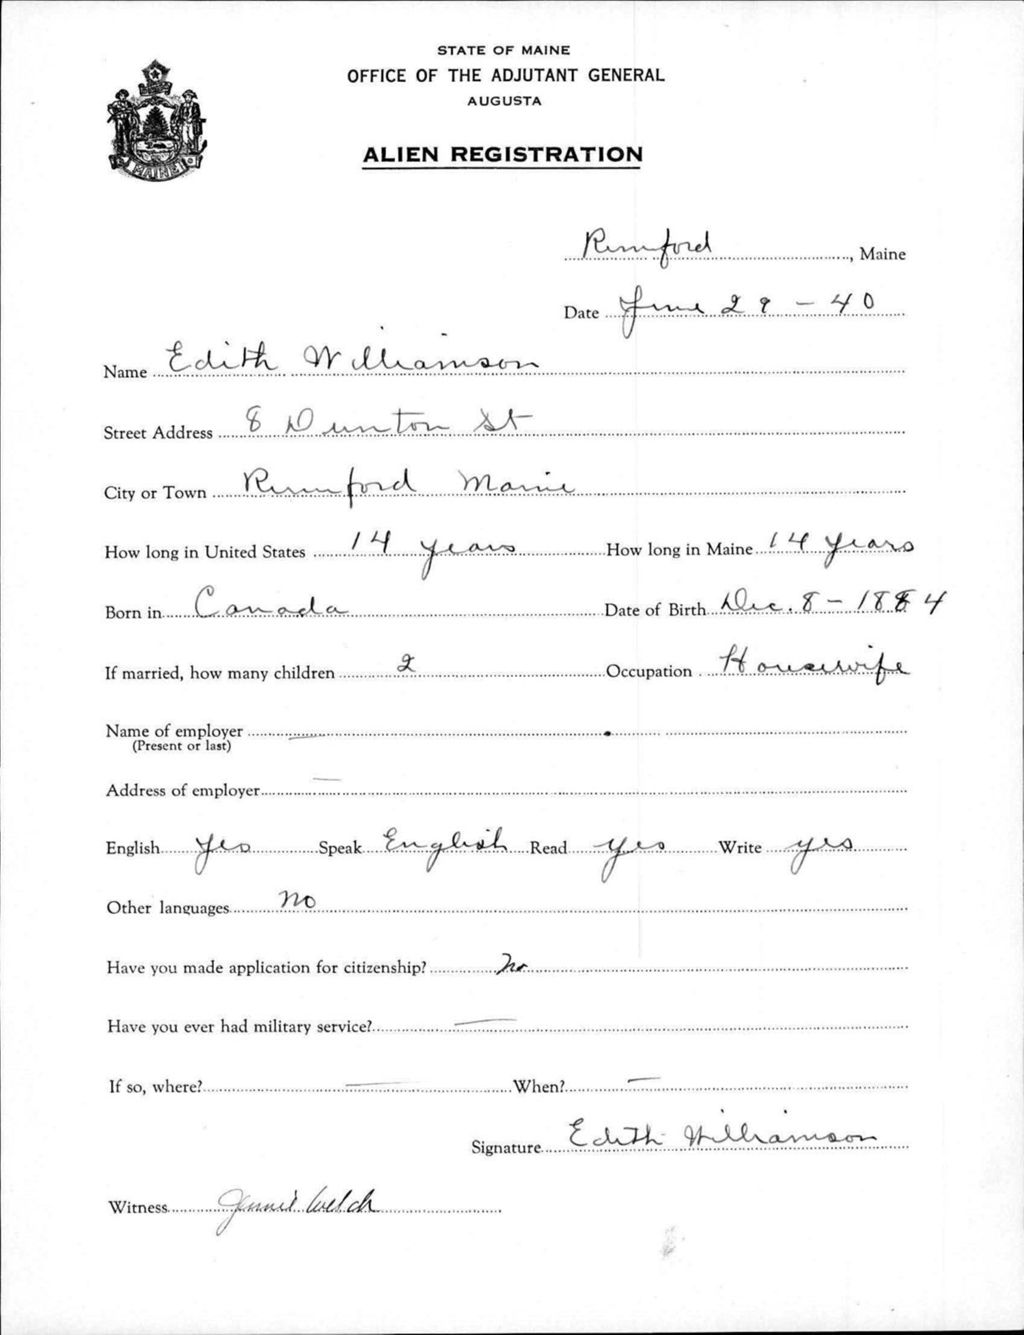 STATE OF MAINE
OFFICE OF THE ADJUTANT GENERAL
AUGUSTA
MAINE
ALIEN REGISTRATION
Rumford, Maine
Date June 29 - 40
Name Edith Williamson
Street Address 8 Dunton St
City or Town Rumford Maine
How long in United States 14 years How long in Maine 14 years
Born in Canada Date of Birth Dec. 8 - 1884
If married, how many children 2 Occupation Housewife
Name of employer —
(Present or last)
Address of employer —
English yes Speak English Read yes Write yes
Other languages no
Have you made application for citizenship? no
Have you ever had military service? —
If so, where? — When? —
Signature Edith Williamson
Witness Jennie Welch